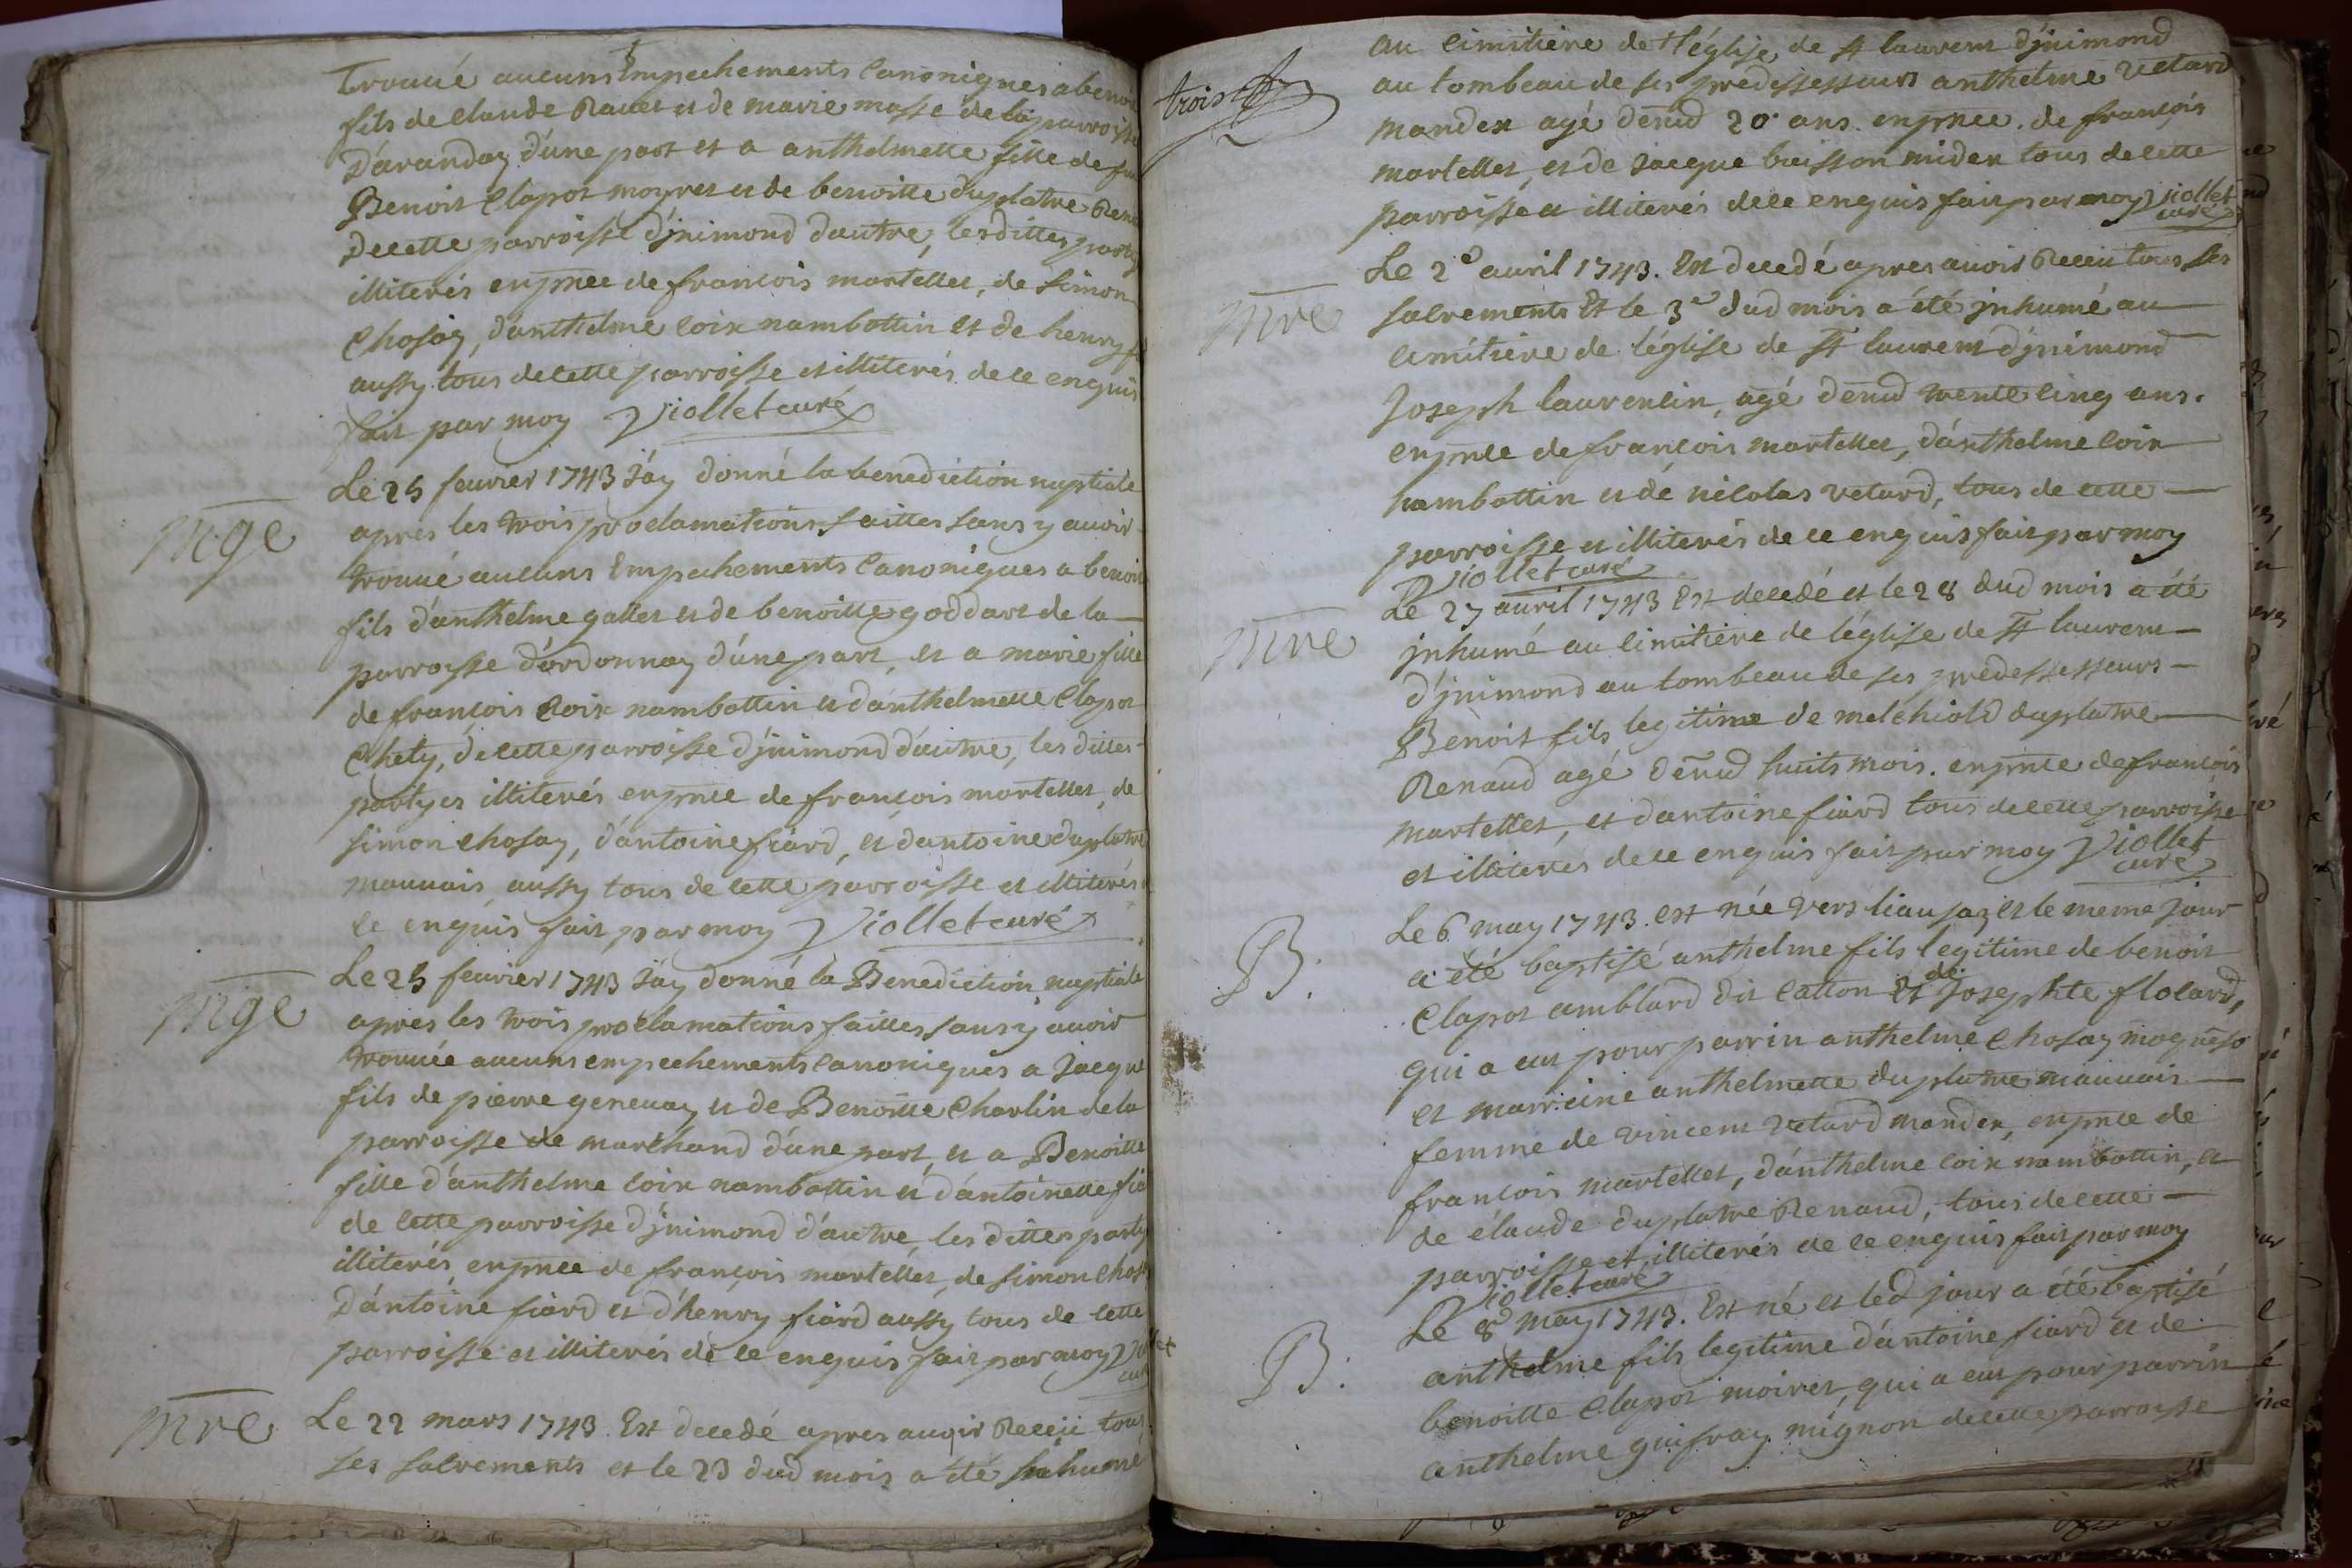 trouué aucuns Empechements Canoniques a benoit
fils de Claude Rauet et de marie masse de la parroisse
D'arandaz d'une part et a anthelmette fille de
Benoit Clapot moyret et de benoitte duplatre
De cette parroisse d'jnimond d'autre, les dittes partyes
illiterés enpñce de françois martellet, de simon
Chosaz, d'anthelme loix nambottin et de henry
aussy tous de cette parroisse et illiterés de ce enquis
fait par moy Viollet curé
Le 25 feurier 1743 J'ay donné la benediction nuptiale
Mge
apres les trois proclamations faittes sans y auoir
trouué aucuns Empechements Canoniques a benoit
fils d'anthelme gallet et de benoitte goddart de la
parroisse d'ordonnaz d'une part, et a marie fille
de françois Coix nambottin et d'anthelmette Clapot
Chety, de cette parroisse d'jnimond d'autre, les dittes
partyes illiterés enpñce de françois martellet, de
simon chosaz, d'antoine fiard, et d'antoine duplatre
mauuais, aussy tous de cette parroisse et illiterés
ce enquis fait par moy Viollet curé
Le 25 feurier 1743 J'ay donné la Benediction nuptiale
Mge
apres les trois proclamations faittes sans y auoir
trouuée aucuns empechements canoniques a Jacque
fils de pierre geneuaz et de Benoitte Charlin de la
parroisse de marchand d'une part, et a Benoitte
fille d'anthelme loix nambottin et d'antoinette
de cette parroisse d'jnimond d'autre, les dittes party
illiterés enpñce de françois martellet, de simon
D'antoine fiard et d'henry fiard aussy tous de cette
parroisse et illiterés de ce enquis fait par moy
Mre
Le 22 mars 1743. Est decedé apres auoir Receü tous
ses sacrements et le 23 dud mois a été jnhumé
trois
au cimitiere de l'église de St laurent d'jnimond
au tombeau de ses predessesseurs anthelme vetard
mandex agé denud 20 ans. enpñce de françois
martellet, et de Jacque buisson midex tous de cette
parroisse et illiterés de ce enquis fait par moy Viollet
curé
Le 2e auril 1743. Est decedé apres auoir Receü tous ses
Mre
sacrements Et le 3e dud mois a été jnhumé au
cimitiere de l'église de St laurent d'jnimond
Joseph laurencin, agé denud trente cinq ans.
enpñce de françois martellet, d'anthelme loix
nambottin et de nicolas vetard, tous de cette
parroisse et illiterés de ce enquis fait par moy
Viollet curé
Le 27 auril 1743 Est decedé et le 28 dud mois a été
Mre
jnhumé au cimitiere de l'église de St laurent
d'jnimond au tombeau de ses predessesseurs
Benoit fils legitime de melchiold duplatre
Renaud agé denud huits mois. enpñce de françois
martellet, et d'antoine fiard tous de cette parroisse
et illiterés de ce enquis fait par moy Viollet
curé
Le 6 may 1743. est née vers liaujaz et le meme jour
B.
a été baptisé anthelme fils legitime de benoit
Clapot amblard dit Catton et de Josephte flocard,
qui a eut pour parrin anthelme Chosaz
et marreine anthelmette duplatre mauuais
femme de vincent vetard mandex, enpñce de
françois martellet, d'anthelme loix nambottin, et
de claude duplatre Renaud, tous de cette
parroisse et illiterés de ce enquis fait par moy
Viollet curé
Le 8e may 1743. Est né et led jour a été baptisé
B.
anthelme fils legitime d'antoine fiard et de
benoitte Clapot moiret, qui a eut pour parrin
anthelme guifray mignon de cette parroisse